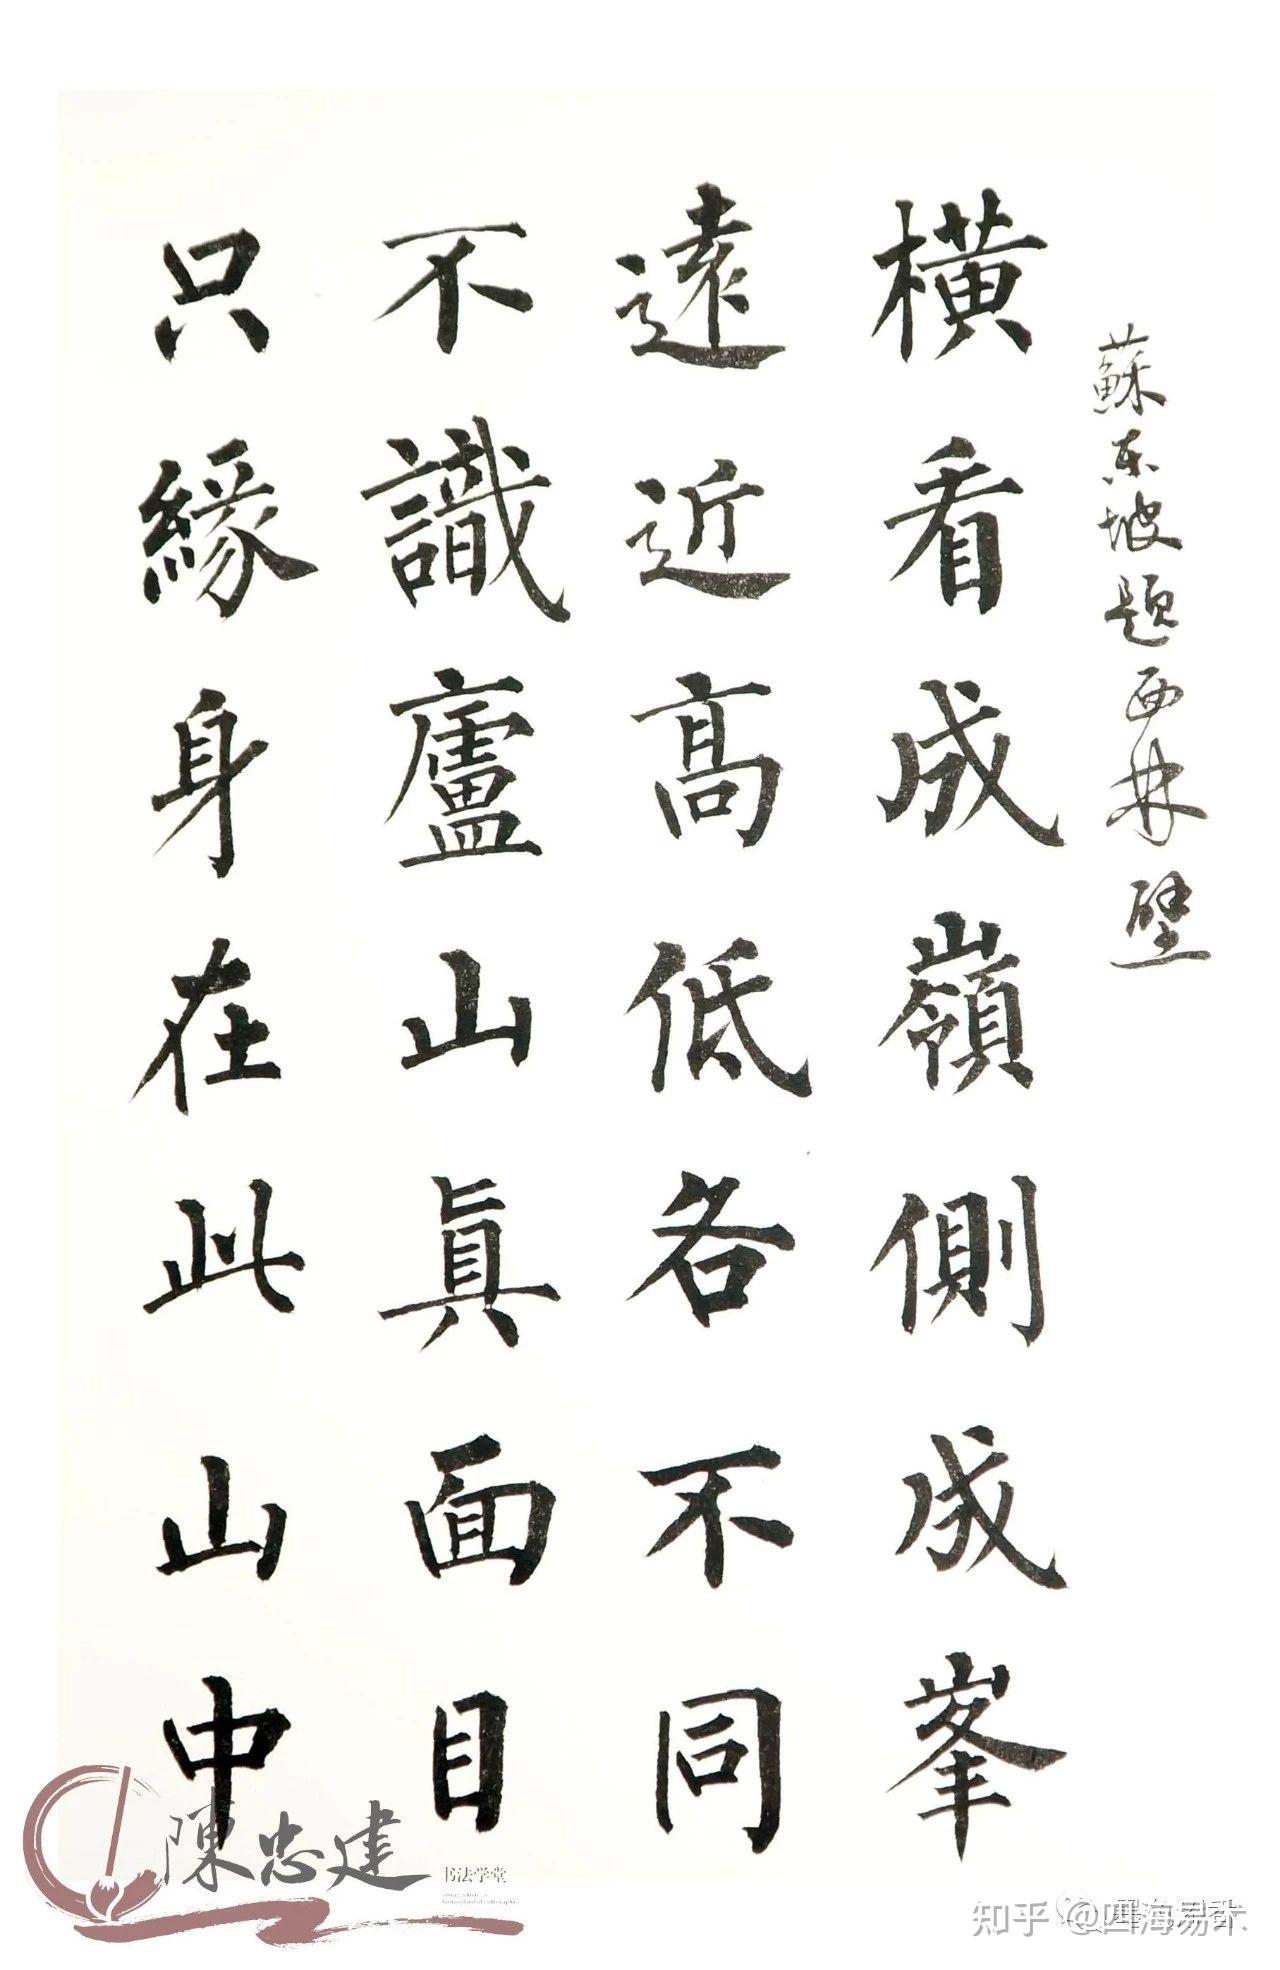 蘇东坡题西林壁
橫看成嶺側成峯
遠近高低各不同
不識廬山眞面目
只緣身在此山中
陳忠建
书法学堂
知乎 @四海易术